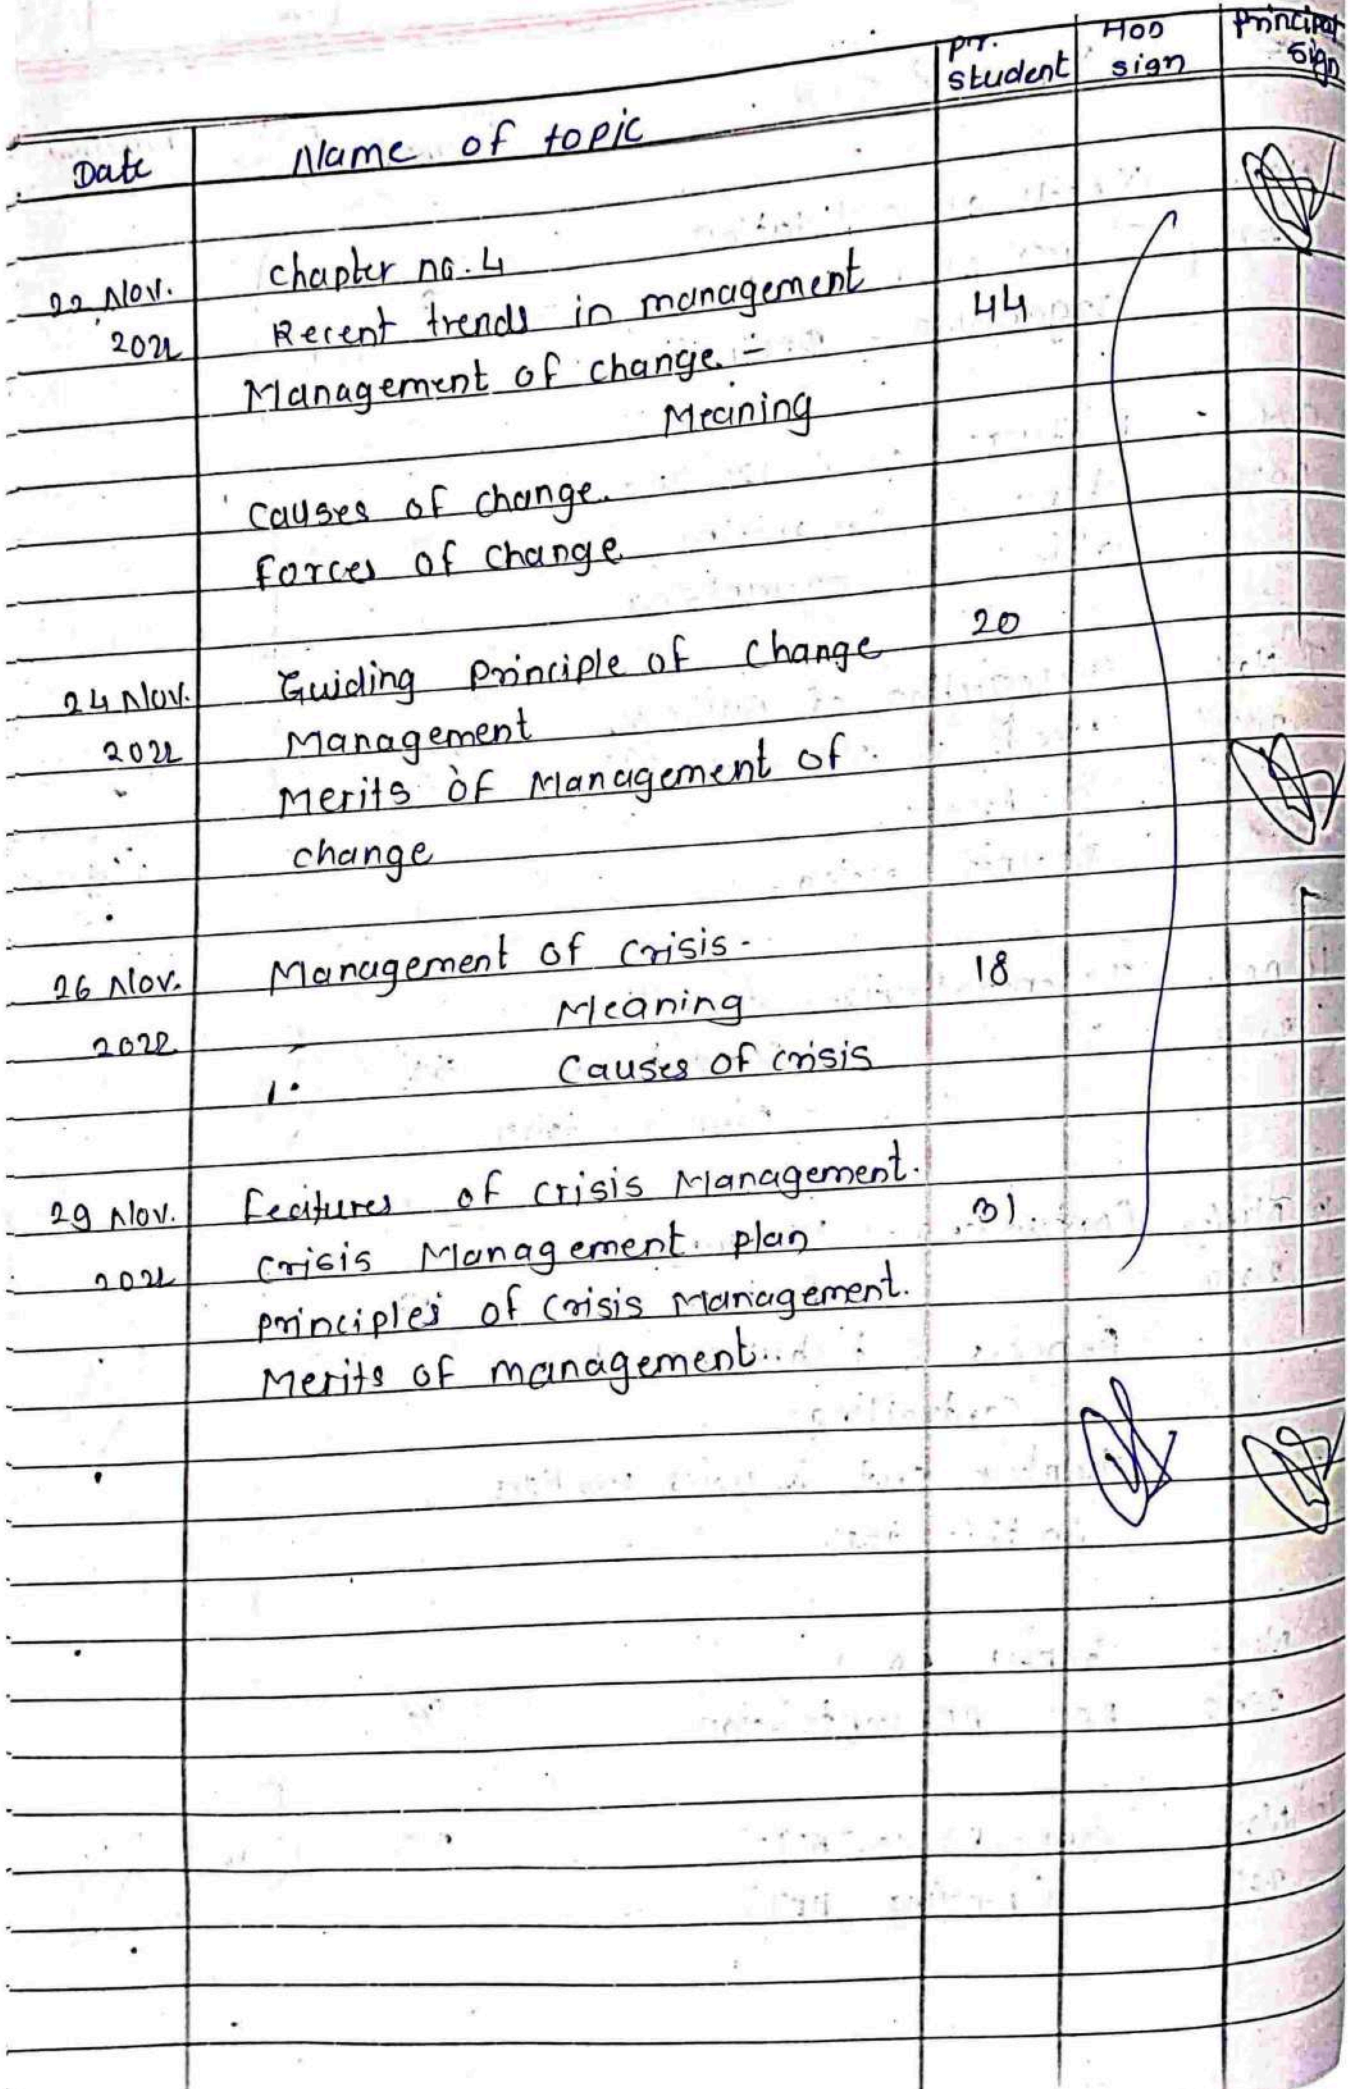 Date Name of topic Pr. Student HOD sign Principal Sign
Chapter no. 4
22 Nov. Recent trends in management 44
2022 Management of change -
Meaning
Causes of change.
Forces of change
24 Nov. Guiding Principle of change 20
2022 Management
Merits of Management of
change
26 Nov. Management of crisis - 18
2022 Meaning
1. Causes of crisis
29 Nov. Features of crisis Management. 31
2022 Crisis Management plan
Principles of crisis Management.
Merits of management.